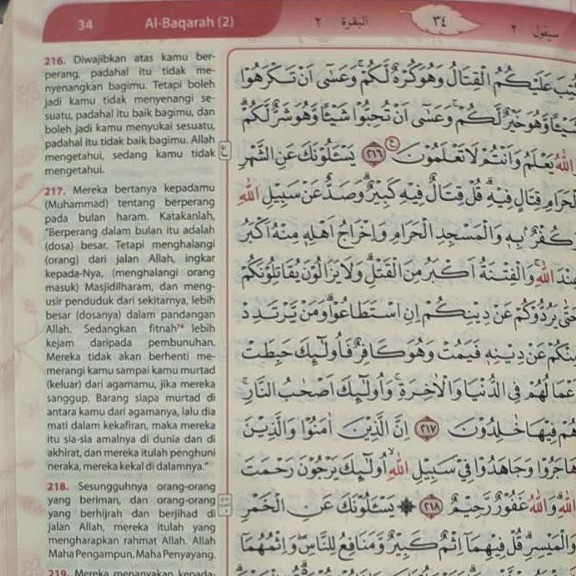 34 Al-Baqarah (2) البقرة ٢ ٣٤ سيقول ٢
216. Diwajibkan atas kamu ber-
perang, padahal itu tidak me-
nyenangkan bagimu. Tetapi boleh
jadi kamu tidak menyenangi se-
suatu, padahal itu baik bagimu, dan
boleh jadi kamu menyukai sesuatu,
padahal itu tidak baik bagimu. Allah
mengetahui, sedang kamu tidak
mengetahui.
217. Mereka bertanya kepadamu
(Muhammad) tentang berperang
pada bulan haram. Katakanlah,
"Berperang dalam bulan itu adalah
(dosa) besar. Tetapi menghalangi
(orang) dari jalan Allah, ingkar
kepada-Nya, (menghalangi orang
masuk) Masjidilharam, dan meng-
usir penduduk dari sekitarnya, lebih
besar (dosanya) dalam pandangan
Allah. Sedangkan fitnah⁷⁴ lebih
kejam daripada pembunuhan.
Mereka tidak akan berhenti me-
merangi kamu sampai kamu murtad
(keluar) dari agamamu, jika mereka
sanggup. Barang siapa murtad di
antara kamu dari agamanya, lalu dia
mati dalam kekafiran, maka mereka
itu sia-sia amalnya di dunia dan di
akhirat, dan mereka itulah penghuni
neraka, mereka kekal di dalamnya."
218. Sesungguhnya orang-orang
yang beriman, dan orang-orang
yang berhijrah dan berjihad di
jalan Allah, mereka itulah yang
mengharapkan rahmat Allah. Allah
Maha Pengampun, Maha Penyayang.
219. Mereka menanyakan kepada-
عَلَيْكُمُ الْقِتَالُ وَهُوَ كُرْهٌ لَّكُمْ ۚ وَعَسٰٓى اَنْ تَكْرَهُوْا
شَيْـًٔا وَّهُوَ خَيْرٌ لَّكُمْ ۚ وَعَسٰٓى اَنْ تُحِبُّوْا شَيْـًٔا وَّهُوَ شَرٌّ لَّكُمْ ۗ
اللّٰهُ يَعْلَمُ وَاَنْتُمْ لَا تَعْلَمُوْنَ ࣖ ٢١٦ يَسْـَٔلُوْنَكَ عَنِ الشَّهْرِ
الْحَرَامِ قِتَالٍ فِيْهِۗ قُلْ قِتَالٌ فِيْهِ كَبِيْرٌ ۗ وَصَدٌّ عَنْ سَبِيْلِ اللّٰهِ
كُفْرٌۢ بِهٖ وَالْمَسْجِدِ الْحَرَامِ وَاِخْرَاجُ اَهْلِهٖ مِنْهُ اَكْبَرُ
عِنْدَ اللّٰهِ ۚ وَالْفِتْنَةُ اَكْبَرُ مِنَ الْقَتْلِ ۗ وَلَا يَزَالُوْنَ يُقَاتِلُوْنَكُمْ
حَتّٰى يَرُدُّوْكُمْ عَنْ دِيْنِكُمْ اِنِ اسْتَطَاعُوْا ۗ وَمَنْ يَّرْتَدِدْ
مِنْكُمْ عَنْ دِيْنِهٖ فَيَمُتْ وَهُوَ كَافِرٌ فَاُولٰۤىِٕكَ حَبِطَتْ
اَعْمَالُهُمْ فِى الدُّنْيَا وَالْاٰخِرَةِ ۚ وَاُولٰۤىِٕكَ اَصْحٰبُ النَّارِ ۚ
هُمْ فِيْهَا خٰلِدُوْنَ ٢١٧ اِنَّ الَّذِيْنَ اٰمَنُوْا وَالَّذِيْنَ
هَاجَرُوْا وَجَاهَدُوْا فِيْ سَبِيْلِ اللّٰهِ ۙ اُولٰۤىِٕكَ يَرْجُوْنَ رَحْمَتَ
اللّٰهِ ۗ وَاللّٰهُ غَفُوْرٌ رَّحِيْمٌ ٢١٨ ۞ يَسْـَٔلُوْنَكَ عَنِ الْخَمْرِ
وَالْمَيْسِرِۗ قُلْ فِيْهِمَآ اِثْمٌ كَبِيْرٌ وَّمَنَافِعُ لِلنَّاسِۖ وَاِثْمُهُمَآ